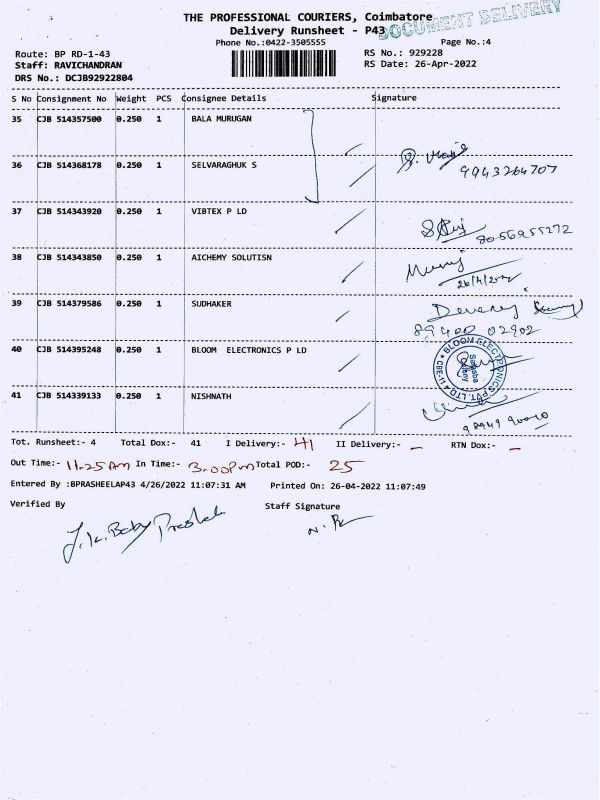 THE PROFESSIONAL COURIERS, Coimbatore
DOCUMENT DELIVERY
Delivery Runsheet - P43
Phone No.:0422-3505555
Page No.:4
Route: BP RD-1-43
RS No.: 929228
Staff: RAVICHANDRAN
RS Date: 26-Apr-2022
DRS No.: DCJB92922804
S No Consignment No Weight PCS Consignee Details Signature
35 CJB 514357500 0.250 1 BALA MURUGAN
36 CJB 514368178 0.250 1 SELVARAGHUK S
9943264707
37 CJB 514343920 0.250 1 VIBTEX P LD
8056955272
38 CJB 514343850 0.250 1 AICHEMY SOLUTISN
39 CJB 514379586 0.250 1 SUDHAKER
89400 02902
40 CJB 514395248 0.250 1 BLOOM ELECTRONICS P LD
BLOOM ELECTRONICS PVT. LTD CBE-11
41 CJB 514339133 0.250 1 NISHNATH
Tot. Runsheet:- 4 Total Dox:- 41 I Delivery:- 41 II Delivery:- - RTN Dox:- -
Out Time:- 11.25 Am In Time:- 3.00Pm Total POD:- 25
Entered By :BPRASHEELAP43 4/26/2022 11:07:31 AM Printed On: 26-04-2022 11:07:49
Verified By Staff Signature